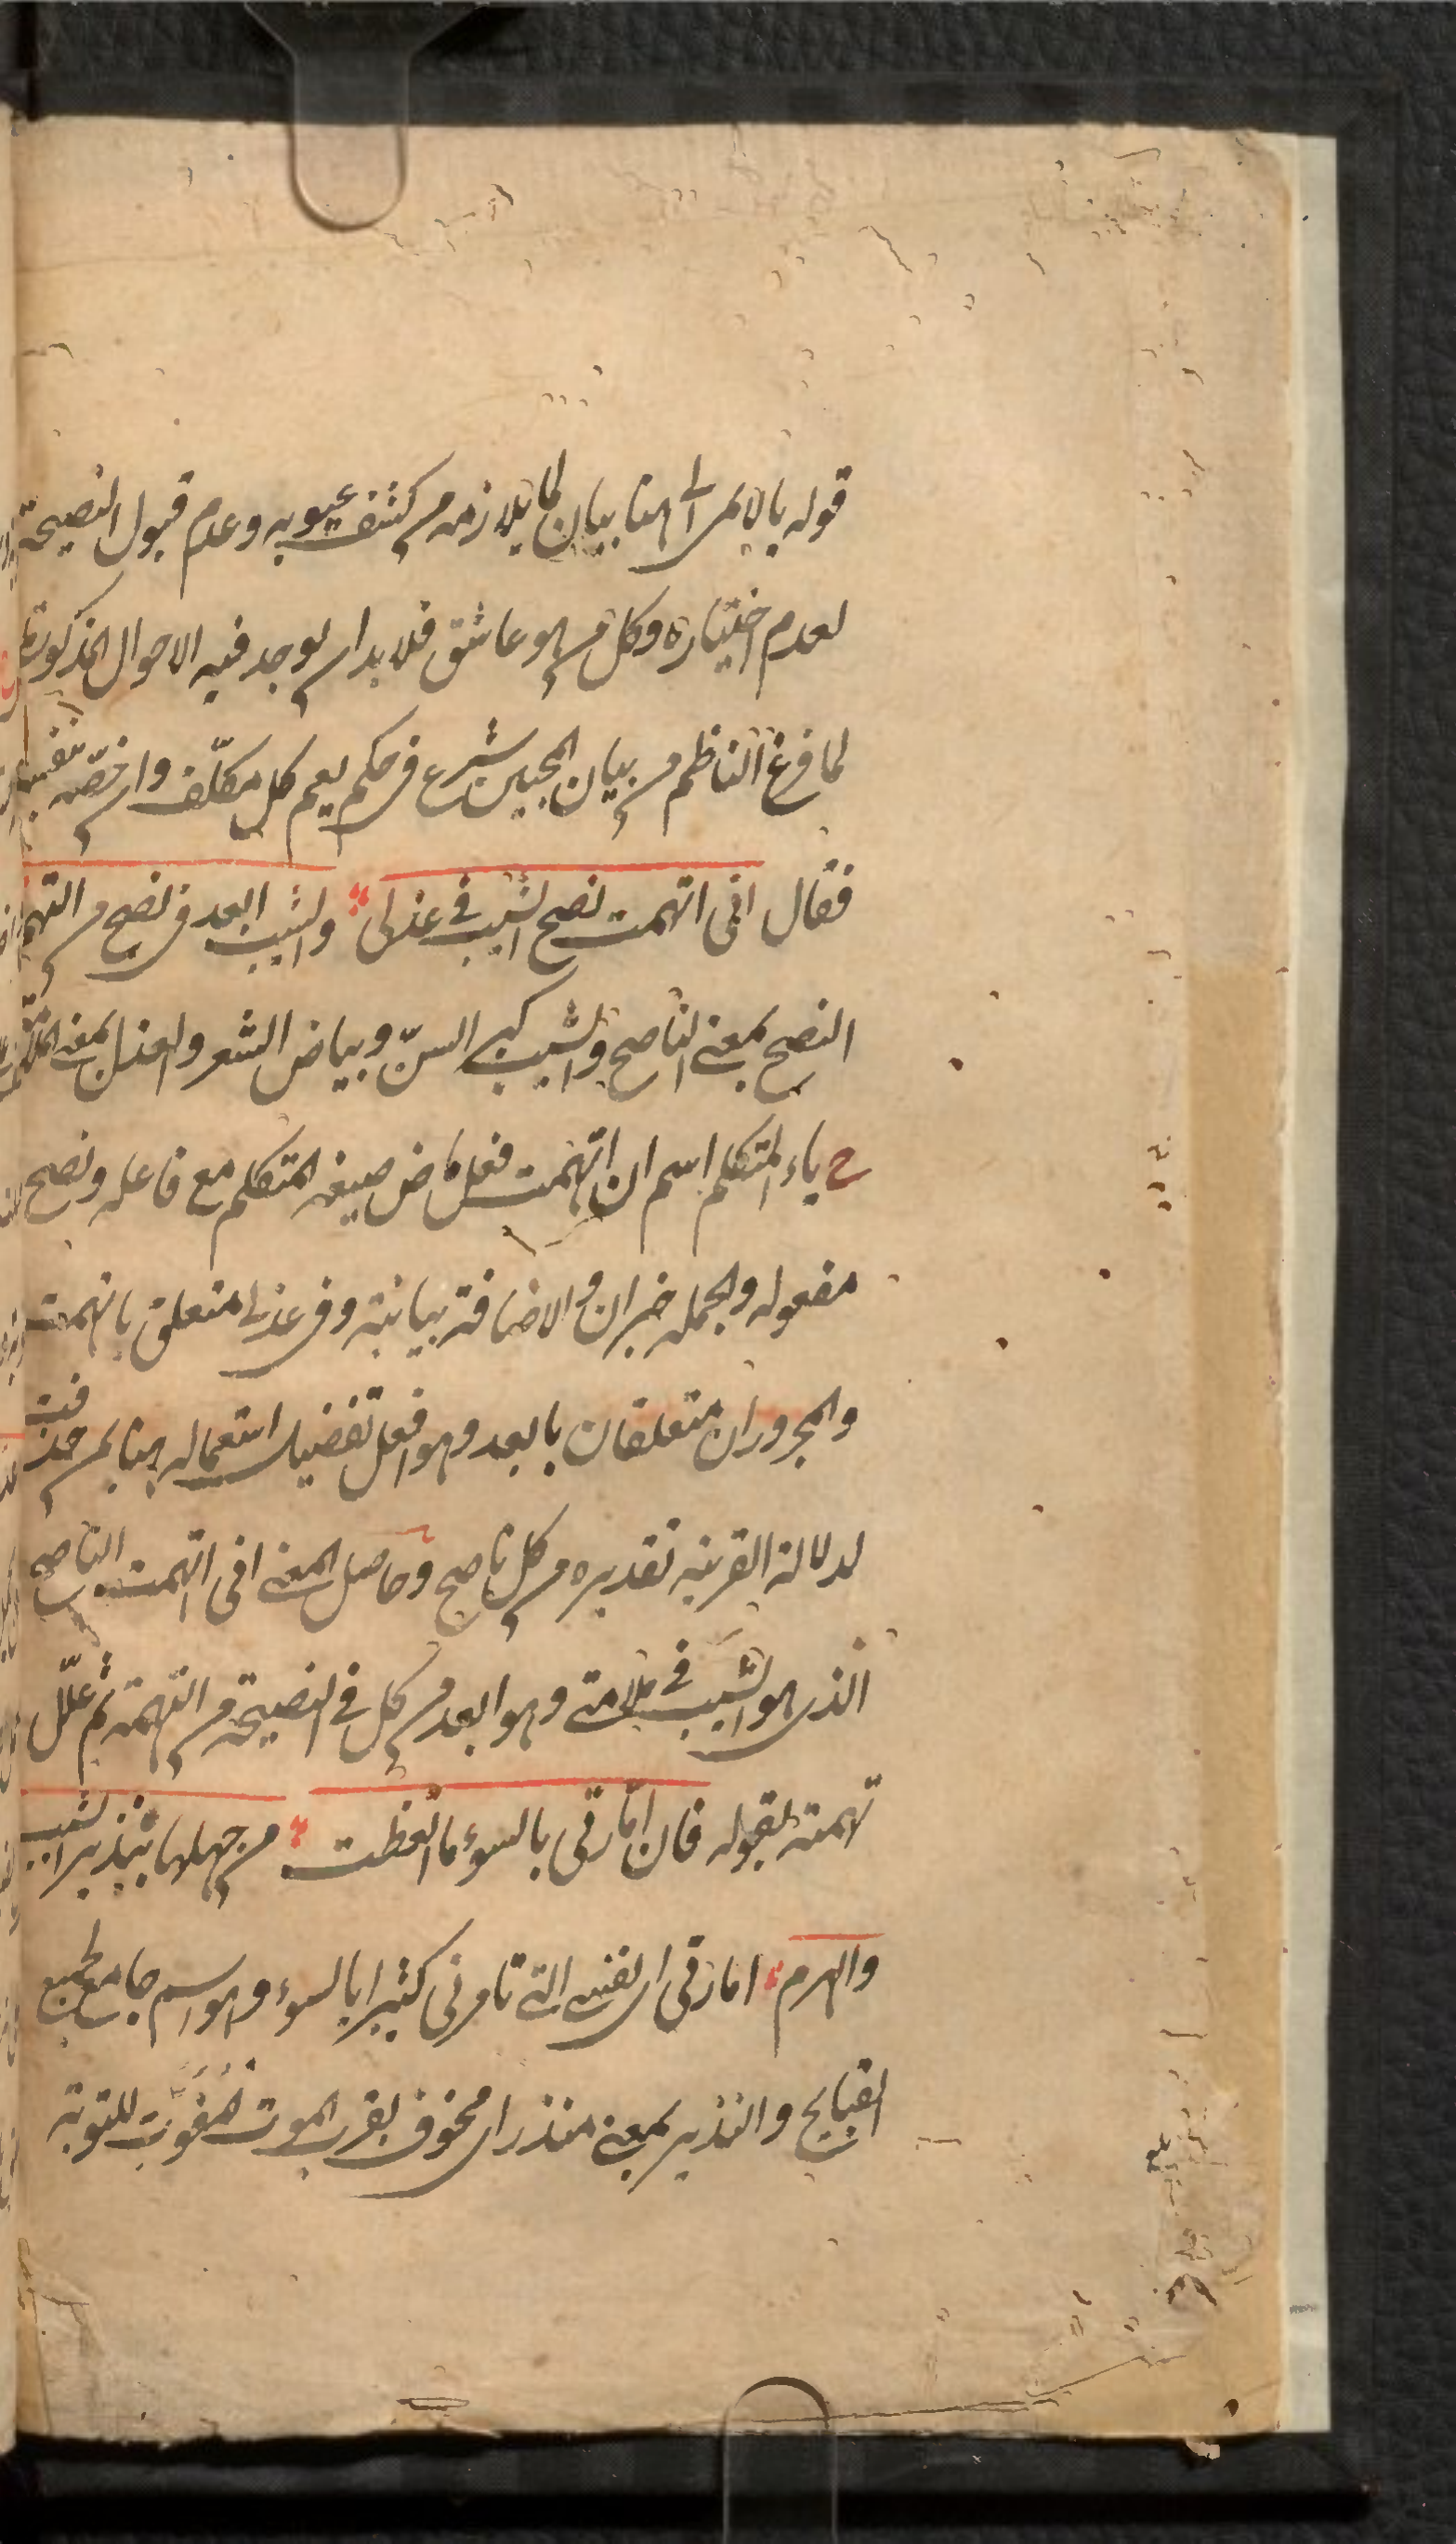 قوله يا لائمى الى هنا بيان لما يلازمه من كشف عيوبه وعدم قبول النصيحة
لعدم اختياره وكل من هو عاشق فلا بد ان يوجد فيه الاحوال المذكورة
لما فرغ الناظم من بيان المحبين شرع فى حكم يعم كل مكلّف وان خصّه بنفسه
فقال انى اتهمت نصيح الشيب فى عذلى والشيب ابعد فى نصح من التهم
النصيح بمعنى الناصح والشيب كبر السنّ وبياض الشعر والعذل بمعنى الملامة
ح ياء المتكلم اسم ان اتهمت فعل ماض صيغه المتكلم مع فاعله ونصيح
مفعوله والجمله خبر ان والاضافة بيانية وفى عذلى متعلق باتهمت
والمجروران متعلقان بابعد وهو افعل تفضيل استعماله هنا بمن حذفت
لدلالة القرينه تقديره من كل ناصح وحاصل المعنى انى اتهمت الناصح
الذى هو الشيب فى ملامتى وهو ابعد من كل فى النصيحة من التهمة ثم علّل
تهمته بقوله فان امّارتى بالسوء ما اتعظت من جهلها بنذير الشيب
والهرم امارتى اى نفسى التى تامرنى كثيرا بالسوء وهو اسم جامع لجميع
القبايح والنذير بمعنى منذر اى مخوف بقرب الموت المفوّت للتوبة